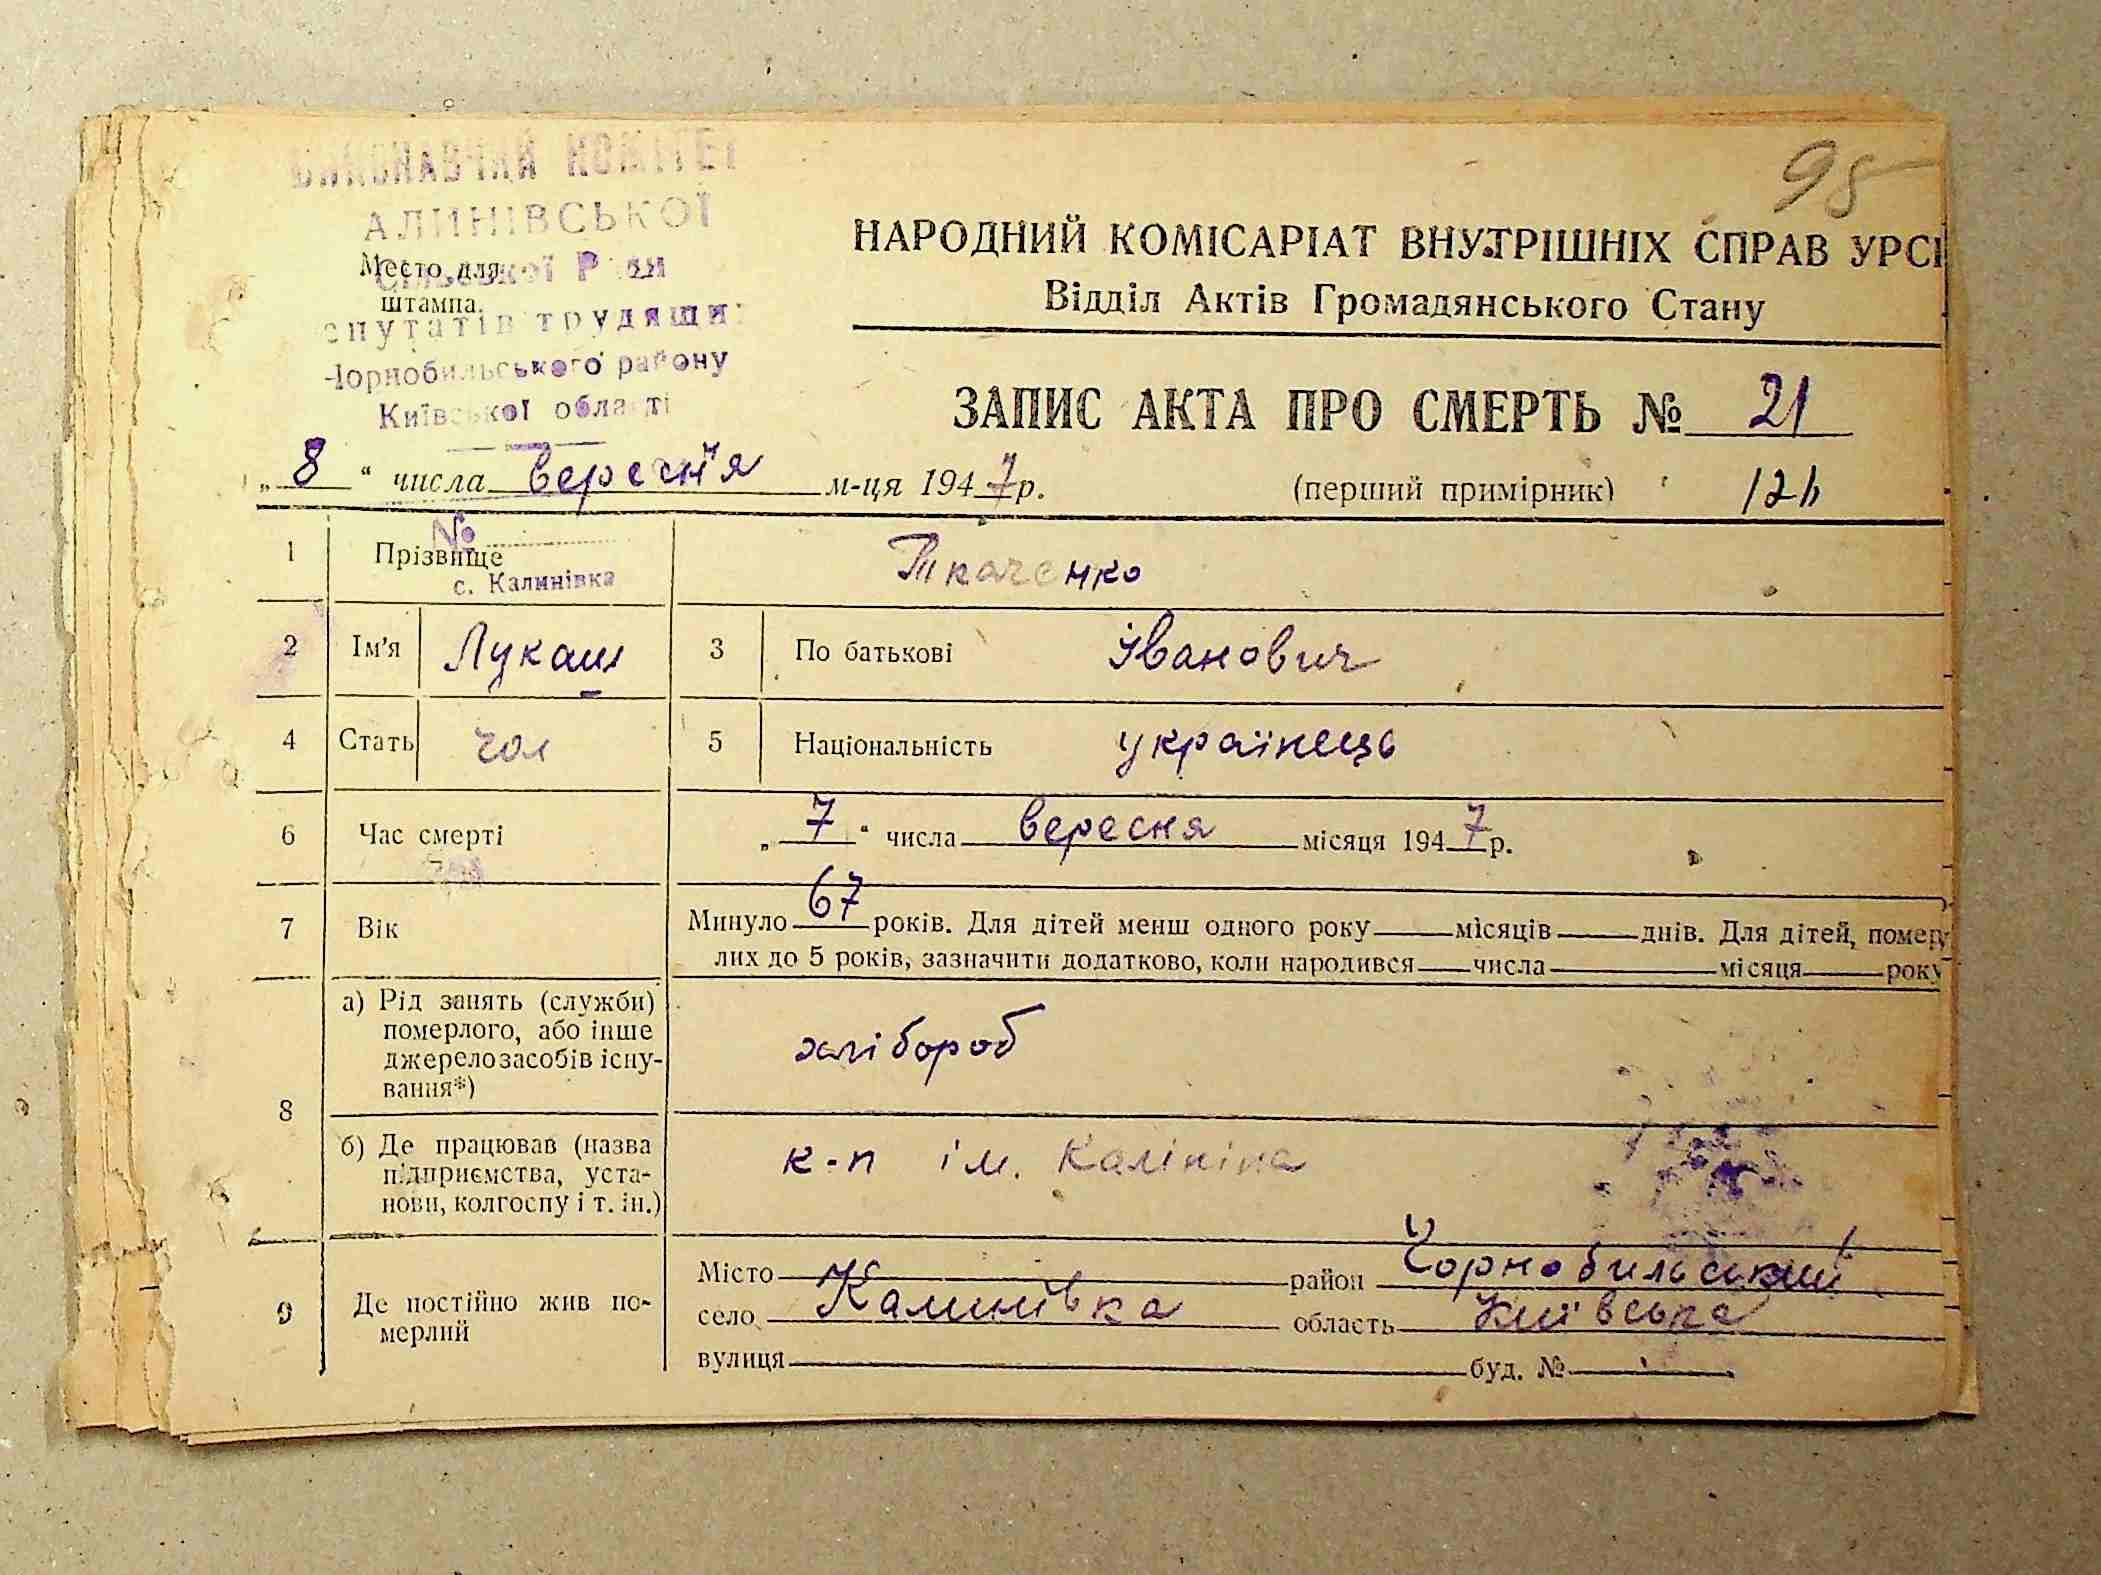 95
ВИКОНАВЧИЙ КОМІТЕТ
АЛИНІВСЬКОЇ
Сільської Ради
епутатів трудящих
Чорнобильського району
Київської області
Место для
штампа.
НАРОДНИЙ КОМІСАРІАТ ВНУТРІШНІХ СПРАВ УРСР
Відділ Актів Громадянського Стану
ЗАПИС АКТА ПРО СМЕРТЬ № 21
„ 8 “ числа вересня м-ця 1947р. (перший примірник)
№
с. Калинівка
1 Прізвище Ткаченко
2 Ім'я Лукаш 3 По батькові Іванович
4 Стать чол 5 Національність українець
6 Час смерті „ 7 “ числа вересня місяця 1947р.
7 Вік Минуло 67 років. Для дітей менш одного року місяців днів. Для дітей, помер
лих до 5 років, зазначити додатково, коли народився числа місяця року
8 а) Рід занять (служби)
померлого, або інше
джерело засобів існу-
вання*) хлібороб
б) Де працював (назва
підприємства, уста-
нови, колгоспу і т. ін.) к-п ім. Калініна
9 Де постійно жив по-
мерлий
Місто район Чорнобильський
село Калинівка область Київська
вулиця буд. №